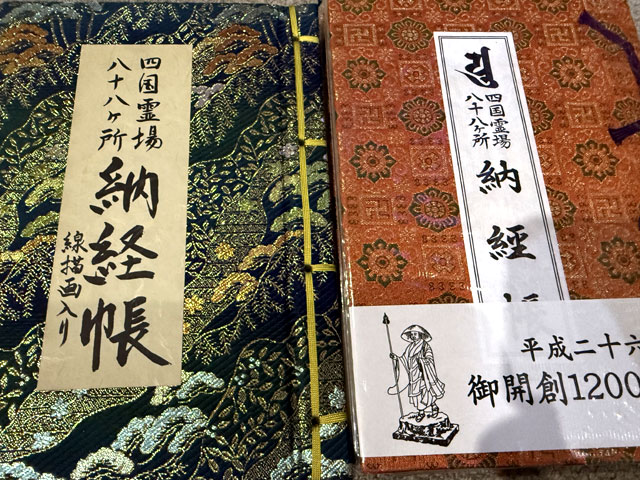 四国霊場
八十八ヶ所
納経帳
線描画入り
四国霊場
八十八ヶ所
納經
平成二十六
御開創1200